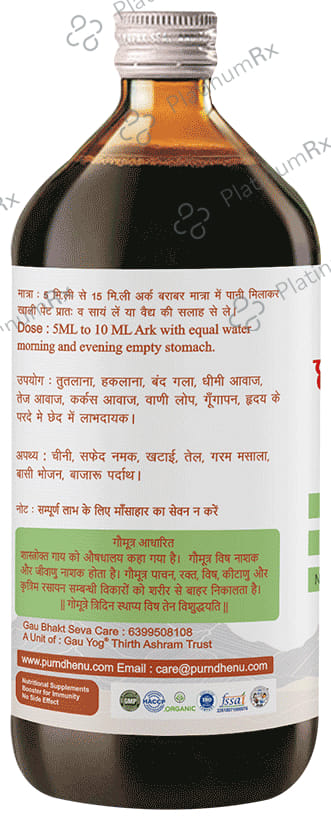 PlatinumRx
PlatinumRx
PlatinumRx
मात्रा : 5 मि.ली से 15 मि.ली अर्क बराबर मात्रा में पानी मिलाकर
खाली पेट प्रातः व सायं लें या वैद्य की सलाह से ले।
Dose : 5ML to 10 ML Ark with equal water
morning and evening empty stomach.
उपयोग : तुतलाना, हकलाना, बंद गला, धीमी आवाज,
तेज आवाज, कर्कस आवाज, वाणी लोप, गूँगापन, हृदय के
परदे मे छेद में लाभदायक।
अपथ्य : चीनी, सफेद नमक, खटाई, तेल, गरम मसाला,
बासी भोजन, बाजारू पदार्थ।
नोट : सम्पूर्ण लाभ के लिए माँसाहार का सेवन न करें
गौमूत्र आधारित
शास्त्रोक्त गाय को औषधालय कहा गया है। गौमूत्र विष नाशक
और जीवाणु नाशक होता है। गौमूत्र पाचन, रक्त, विष, कीटाणु और
कृत्रिम रसायन सम्बन्धी विकारों को शरीर से बाहर निकालता है।
|| गोमूत्रे त्रिदिनं स्थाप्य विष तेन विशुद्धयति ||
Gau Bhakt Seva Care : 6399508108
A Unit of : Gau Yog® Thirth Ashram Trust
www.purndhenu.com Email : care@purndhenu.com
Nutritional Supplements
Booster for Immunity
No Side Effect
GMP
HACCP
ORGANIC
ISO
fssai